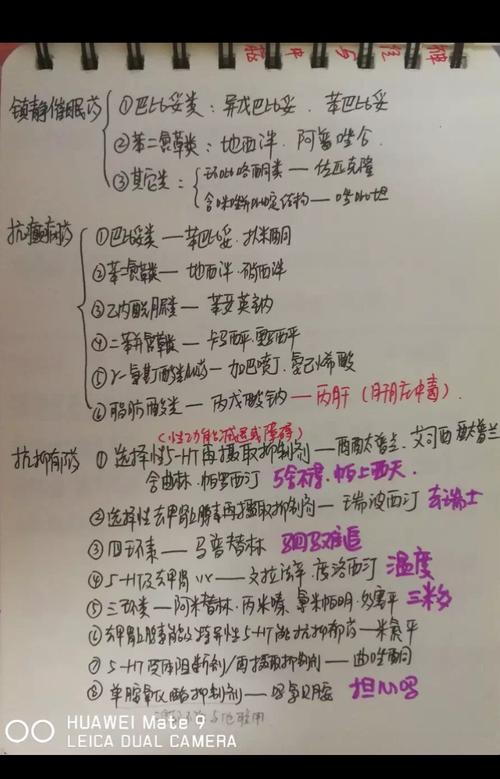 镇静催眠药
①巴比妥类：异戊巴比妥、苯巴比妥
②苯二氮䓬类：地西泮、阿普唑仑
③其它类：
环吡咯酮类—佐匹克隆
含咪唑并吡啶结构—唑吡坦
抗癫痫药
①巴比妥类—苯巴比妥.扑米酮
②苯二氮䓬—地西泮.硝西泮
③乙内酰脲类—苯妥英钠
④二苯并氮䓬类—卡马西平.奥卡西平
⑤γ-氨基丁酸类似药—加巴喷丁.氨己烯酸
⑥脂肪酸类—丙戊酸钠—丙肝（肝脏中毒）.
（性功能减退或障碍）
抗抑郁药 ①选择性5-HT再摄取抑制剂—西酞普兰、艾司西酞普兰
舍曲林.帕罗西汀 5舍不得.帕上西天
②选择性去甲肾上腺素再摄取抑制剂—瑞波西汀 去瑞士
③四环素—马普替林 驷马难追
④5-HT及去甲肾〃—文拉法辛.度洛西汀 温度
⑤三环类—阿米替林.丙米嗪.氯米帕明.多塞平 三米多
⑥去甲肾上腺素能及特异性5-HT能抗抑郁药—米氮平
⑦5-HT受体阻断剂/再摄取抑制剂—曲唑酮
⑧单胺氧化酶抑制剂—吗氯贝胺 担心吗
HUAWEI Mate 9
LEICA DUAL CAMERA